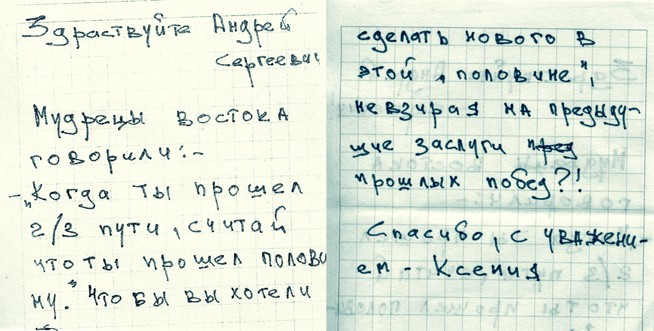 Здраствуйте Андрей
Сергеевич
Мудрецы востока
говорили:-
-„Когда ты прошел
2/3 пути, считай
что ты прошел полови
ну." Что бы вы хотели
сделать нового в
этой „половине",
невзирая на предыду-
щие заслуги пред
прошлых побед?!
Спасибо, с уважени-
ем - Ксения